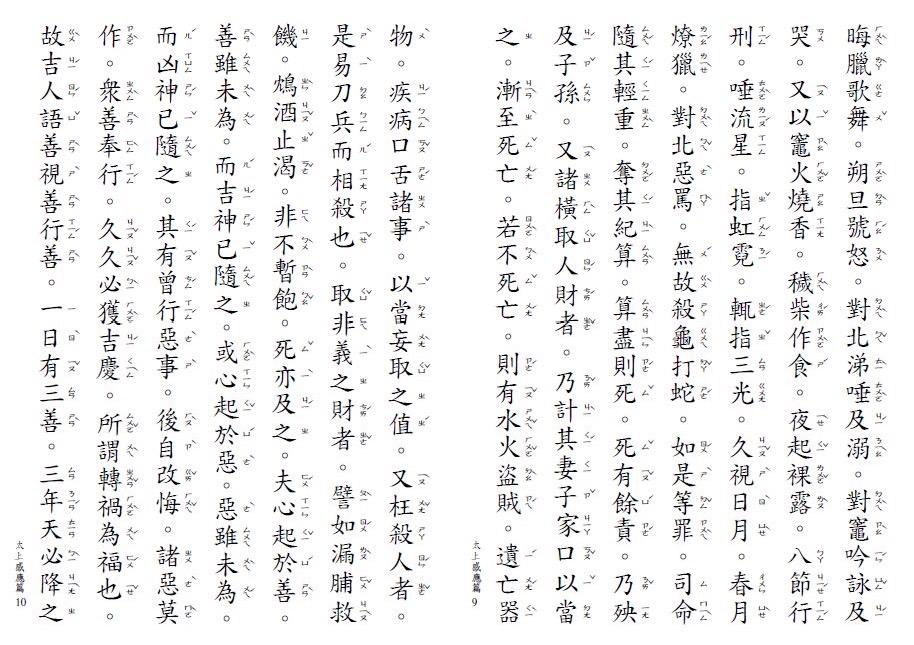 晦臘歌舞。朔旦號怒。對北涕唾及溺。對竈吟詠及
哭。又以竈火燒香。穢柴作食。夜起裸露。八節行
刑。唾流星。指虹霓。輒指三光。久視日月。春月
燎獵。對北惡罵。無故殺龜打蛇。如是等罪。司命
隨其輕重。奪其紀算。算盡則死。死有餘責。乃殃
及子孫。又諸橫取人財者。乃計其妻子家口以當
之。漸至死亡。若不死亡。則有水火盜賊。遺亡器
太上感應篇 9
物。疾病口舌諸事。以當妄取之值。又枉殺人者。
是易刀兵而相殺也。取非義之財者。譬如漏脯救
饑。鴆酒止渴。非不暫飽。死亦及之。夫心起於善。
善雖未為。而吉神已隨之。或心起於惡。惡雖未為。
而凶神已隨之。其有曾行惡事。後自改悔。諸惡莫
作。衆善奉行。久久必獲吉慶。所謂轉禍為福也。
故吉人語善視善行善。一日有三善。三年天必降之
太上感應篇 10